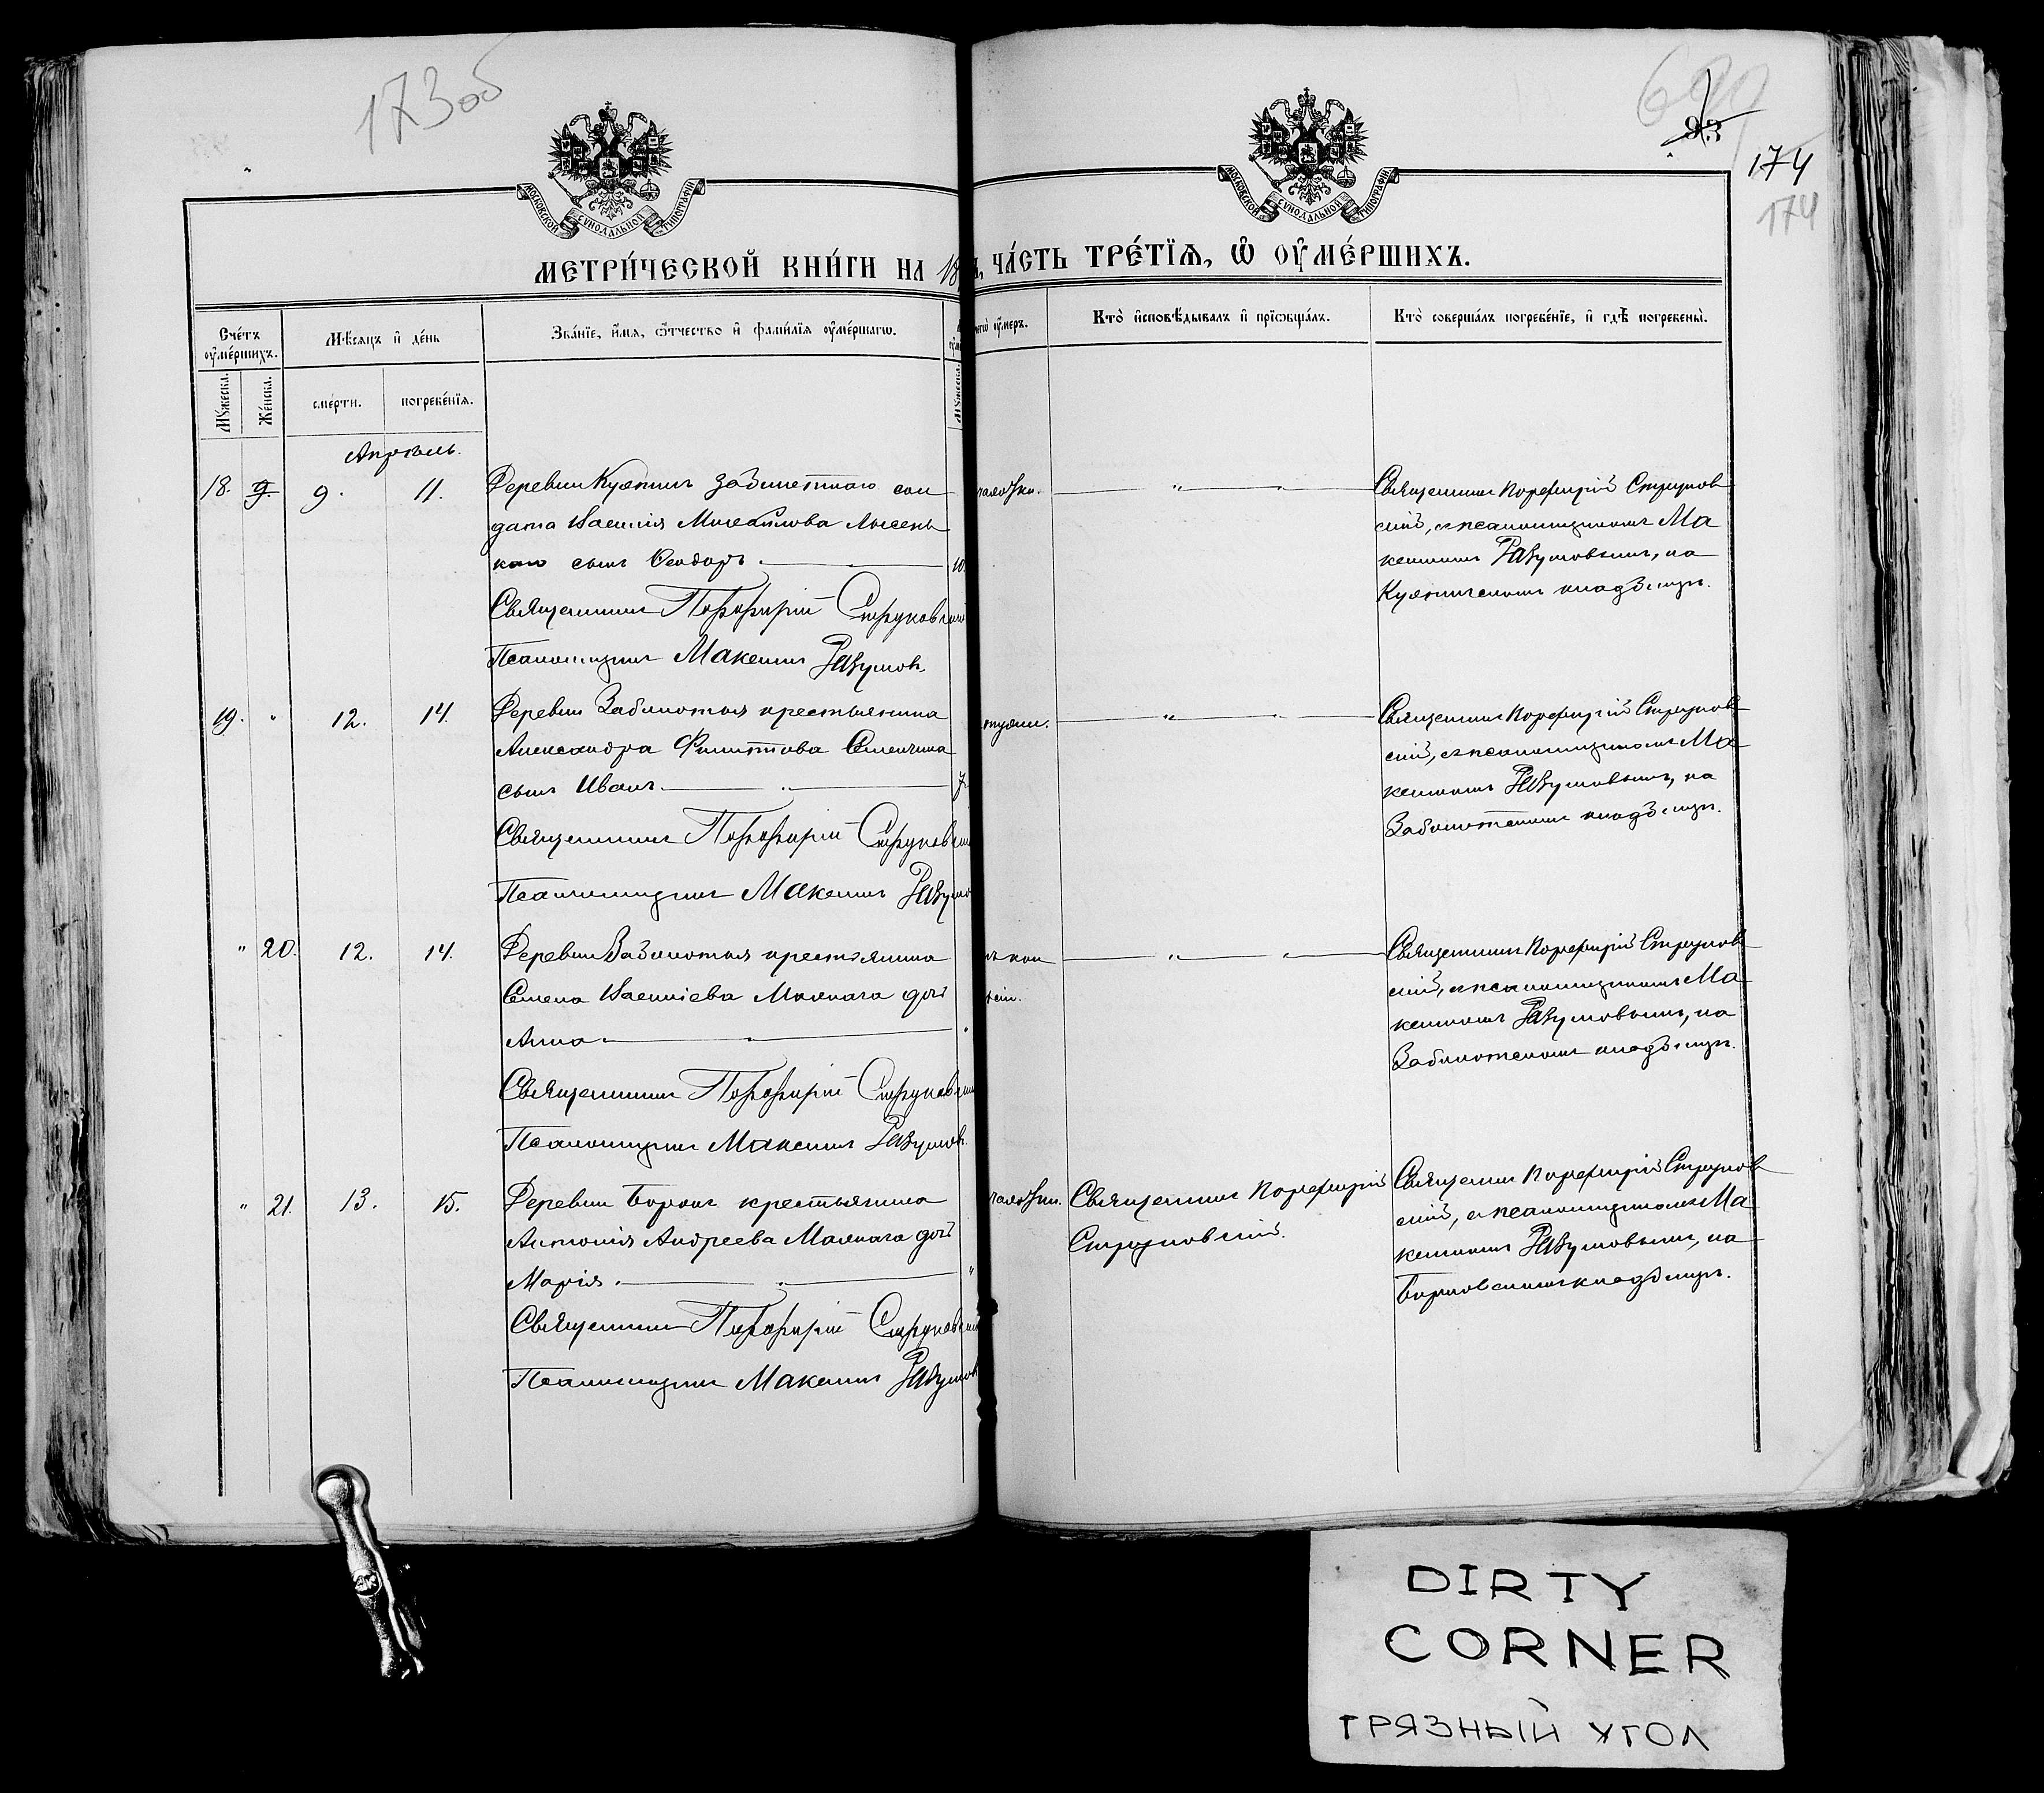 173об
93
174
174
МОСКОВСКОЙ СУНОДАЛЬНОЙ ТИПОГРАФІИ
МОСКОВСКОЙ СУНОДАЛЬНОЙ ТИПОГРАФІИ
МЕТРИ́ЧЕСКОЙ КНИ́ГИ НА 18
ЧА́СТЬ ТРЕ́ТЇѦ, Ѽ ОУ҆МЕ́РШИХЪ.
Сче́тъ оу҆ме́ршихъ.
Мѣ́сяцъ и҆ де́нь
Зва́нїе, и҆́мя, ѻ҆́тчество и҆ фами́лїя оу҆ме́ршагѡ.
оу҆мер.
Кто̀ и҆сповѣ́дывалъ и҆ прїѡбща́лъ.
Кто̀ соверша́лъ погребе́нїе, и҆ гдѣ̀ погребены̀.
Мꙋ́жеска.
Же́нска.
сме́рти.
погребе́нїя.
Мꙋ́жеска.
Апрѣль.
18. 9. 9. 11. Деревни Куяничъ забилетнаго сол
дата Василія Михайлова Лысень
каго сынъ Ѳеодоръ. 10.
Священникъ Порфирій Струковскій
Псаломщикъ Максимъ Разумов.
Священникъ Порфирій Струков
скій, съ псаломщикомъ Ма
ксимомъ Разумовымъ, на
Куяничскомъ кладбищѣ.
19. " 12. 14. Деревни Заболотья крестьянина
Александра Филиппова
сынъ Иванъ 7.
Священникъ Порфирій Струковскі
Псаломщикъ Максимъ Разумо
" "
Священникъ Порфирій Струков
скій, съ псаломщикомъ Ма
ксимомъ Разумовымъ, на
Заболотскомъ кладбищѣ.
" 20. 12. 14. Деревни Заболотья крестьянина
Семена Васильева Малкага дочь
Анна
Священникъ Порфирій Струковскі
Псаломщикъ Максимъ Разумов.
" "
Священникъ Порфирій Струков
скій, съ псаломщикомъ Ма
ксимомъ Разумовымъ, на
Заболотскомъ кладбищѣ.
" 21. 13. 15. Деревни Борокъ крестьянина
Антонія Андреева Малкага дочь
Марія. "
Священникъ Порфирій Струковскій
Псаломщикъ Максимъ Разумов
Священникъ Порфирій
Струковскій.
Священникъ Порфирій Струков
скій, съ псаломщикомъ Ма
ксимомъ Разумовымъ, на
Борковскомъ кладбищѣ.
DIRTY
CORNER
ГРЯЗНЫЙ УГОЛ